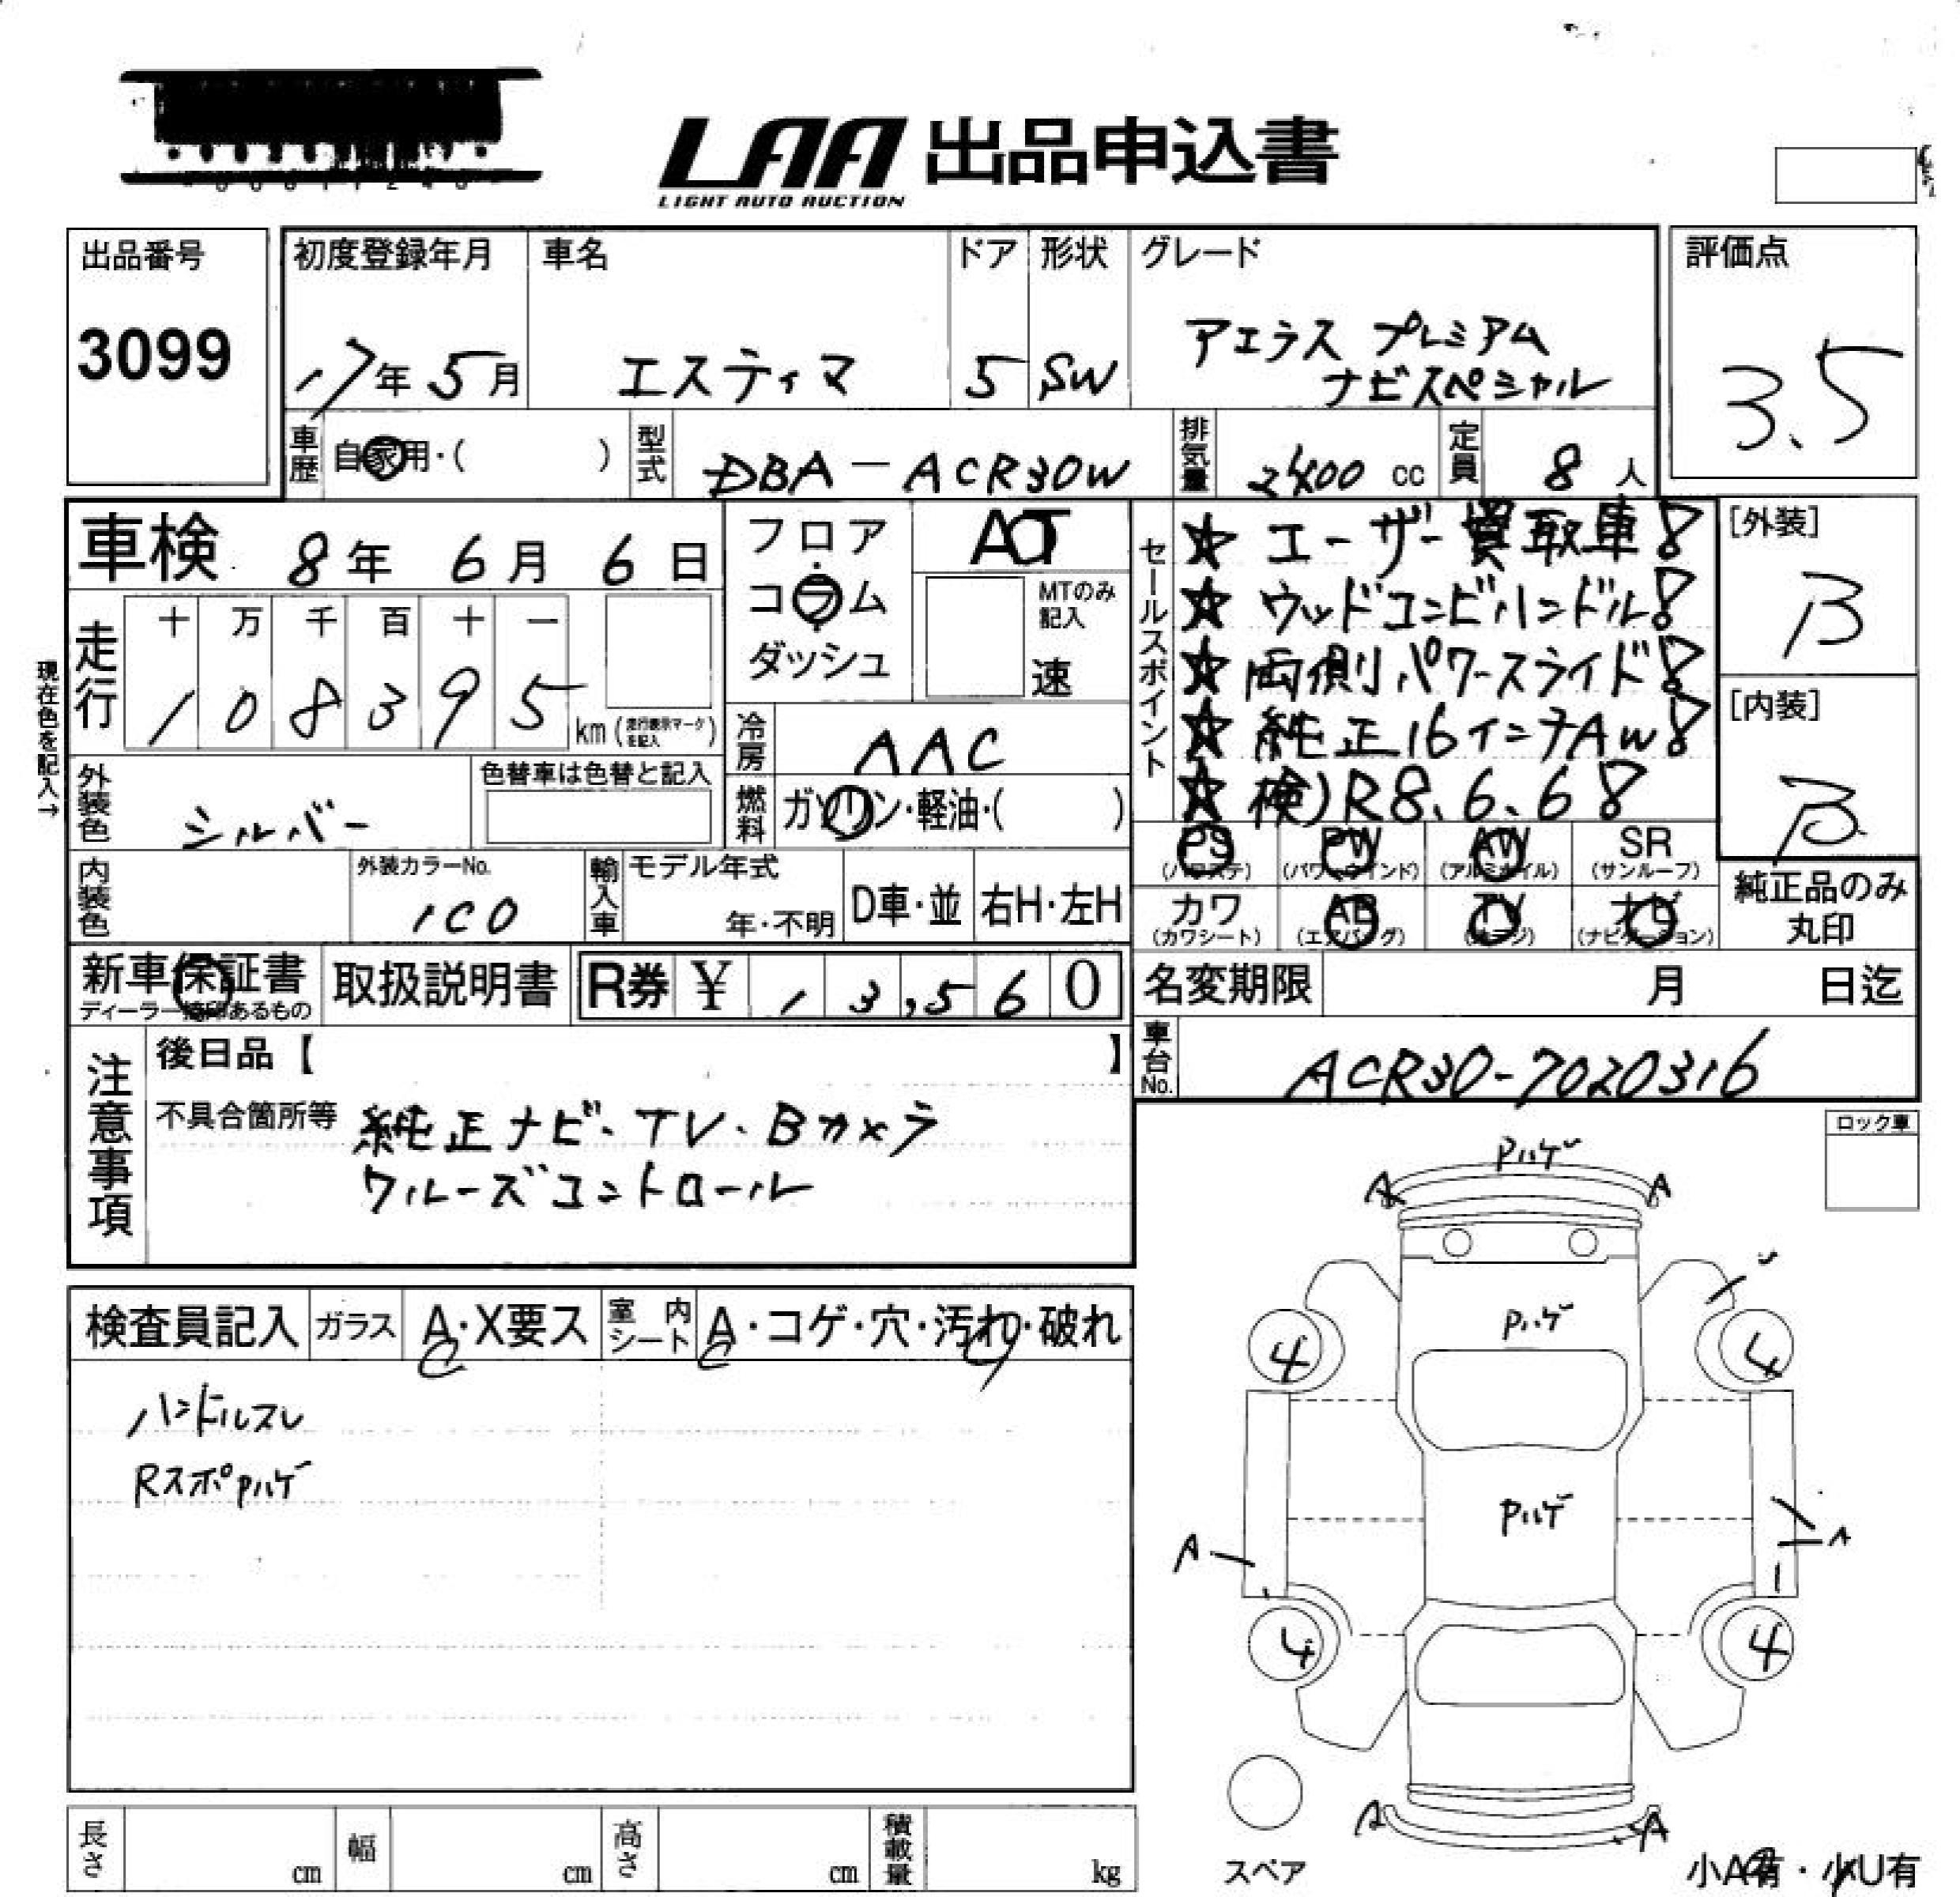 LAA 出品申込書
LIGHT AUTO AUCTION
出品番号
3099
初度登録年月
17年 5月
車名
エスティマ
ドア
5
形状
SW
グレード
アエラス プレミアム
ナビスペシャル
評価点
3.5
車歴
自家用・( )
型式
DBA-ACR30W
排気量
2400 cc
定員
8人
車検 8年 6月 6日
走行
十 万 千 百 十 一
1 0 8 3 9 5
km (走行表示マークを記入)
現在色を記入→
フロア
コラム
ダッシュ
AT
MTのみ
記入
速
冷房
AAC
燃料
ガソリン・軽油・( )
セールスポイント
☆ ユーザー買取車!
☆ ウッドコンビハンドル!
☆ 両側パワースライド!
☆ 純正16インチAW!
☆ 検)R8.6.6!
[外装]
B
[内装]
B
外装色
シルバー
色替車は色替と記入
内装色
外装カラーNo.
1C0
輸入車
モデル年式
年・不明
D車・並
右H・左H
PS
(パワステ)
PW
(パワーウインド)
AW
(アルミホイル)
SR
(サンルーフ)
カワ
(カワシート)
AB
(エアバッグ)
TV
ナビ
(ナビゲーション)
純正品のみ
丸印
新車保証書
ディーラー捺印あるもの
取扱説明書
R券 ¥ 13,560
名変期限 月 日迄
車台No.
ACR30-7020316
注意事項
後日品【 】
不具合箇所等 純正ナビ・TV・Bカメラ
クルーズコントロール
ロック車
検査員記入
ガラス
A・X要ス
室内シート
A・コゲ・穴・汚れ・破れ
ハンドルスレ
RスポPハゲ
Pハゲ
A A
Pハゲ
4 4
Pハゲ
A A
4 4
A A
スペア
小A有・小U有
長さ cm
幅 cm
高さ cm
積載量 kg